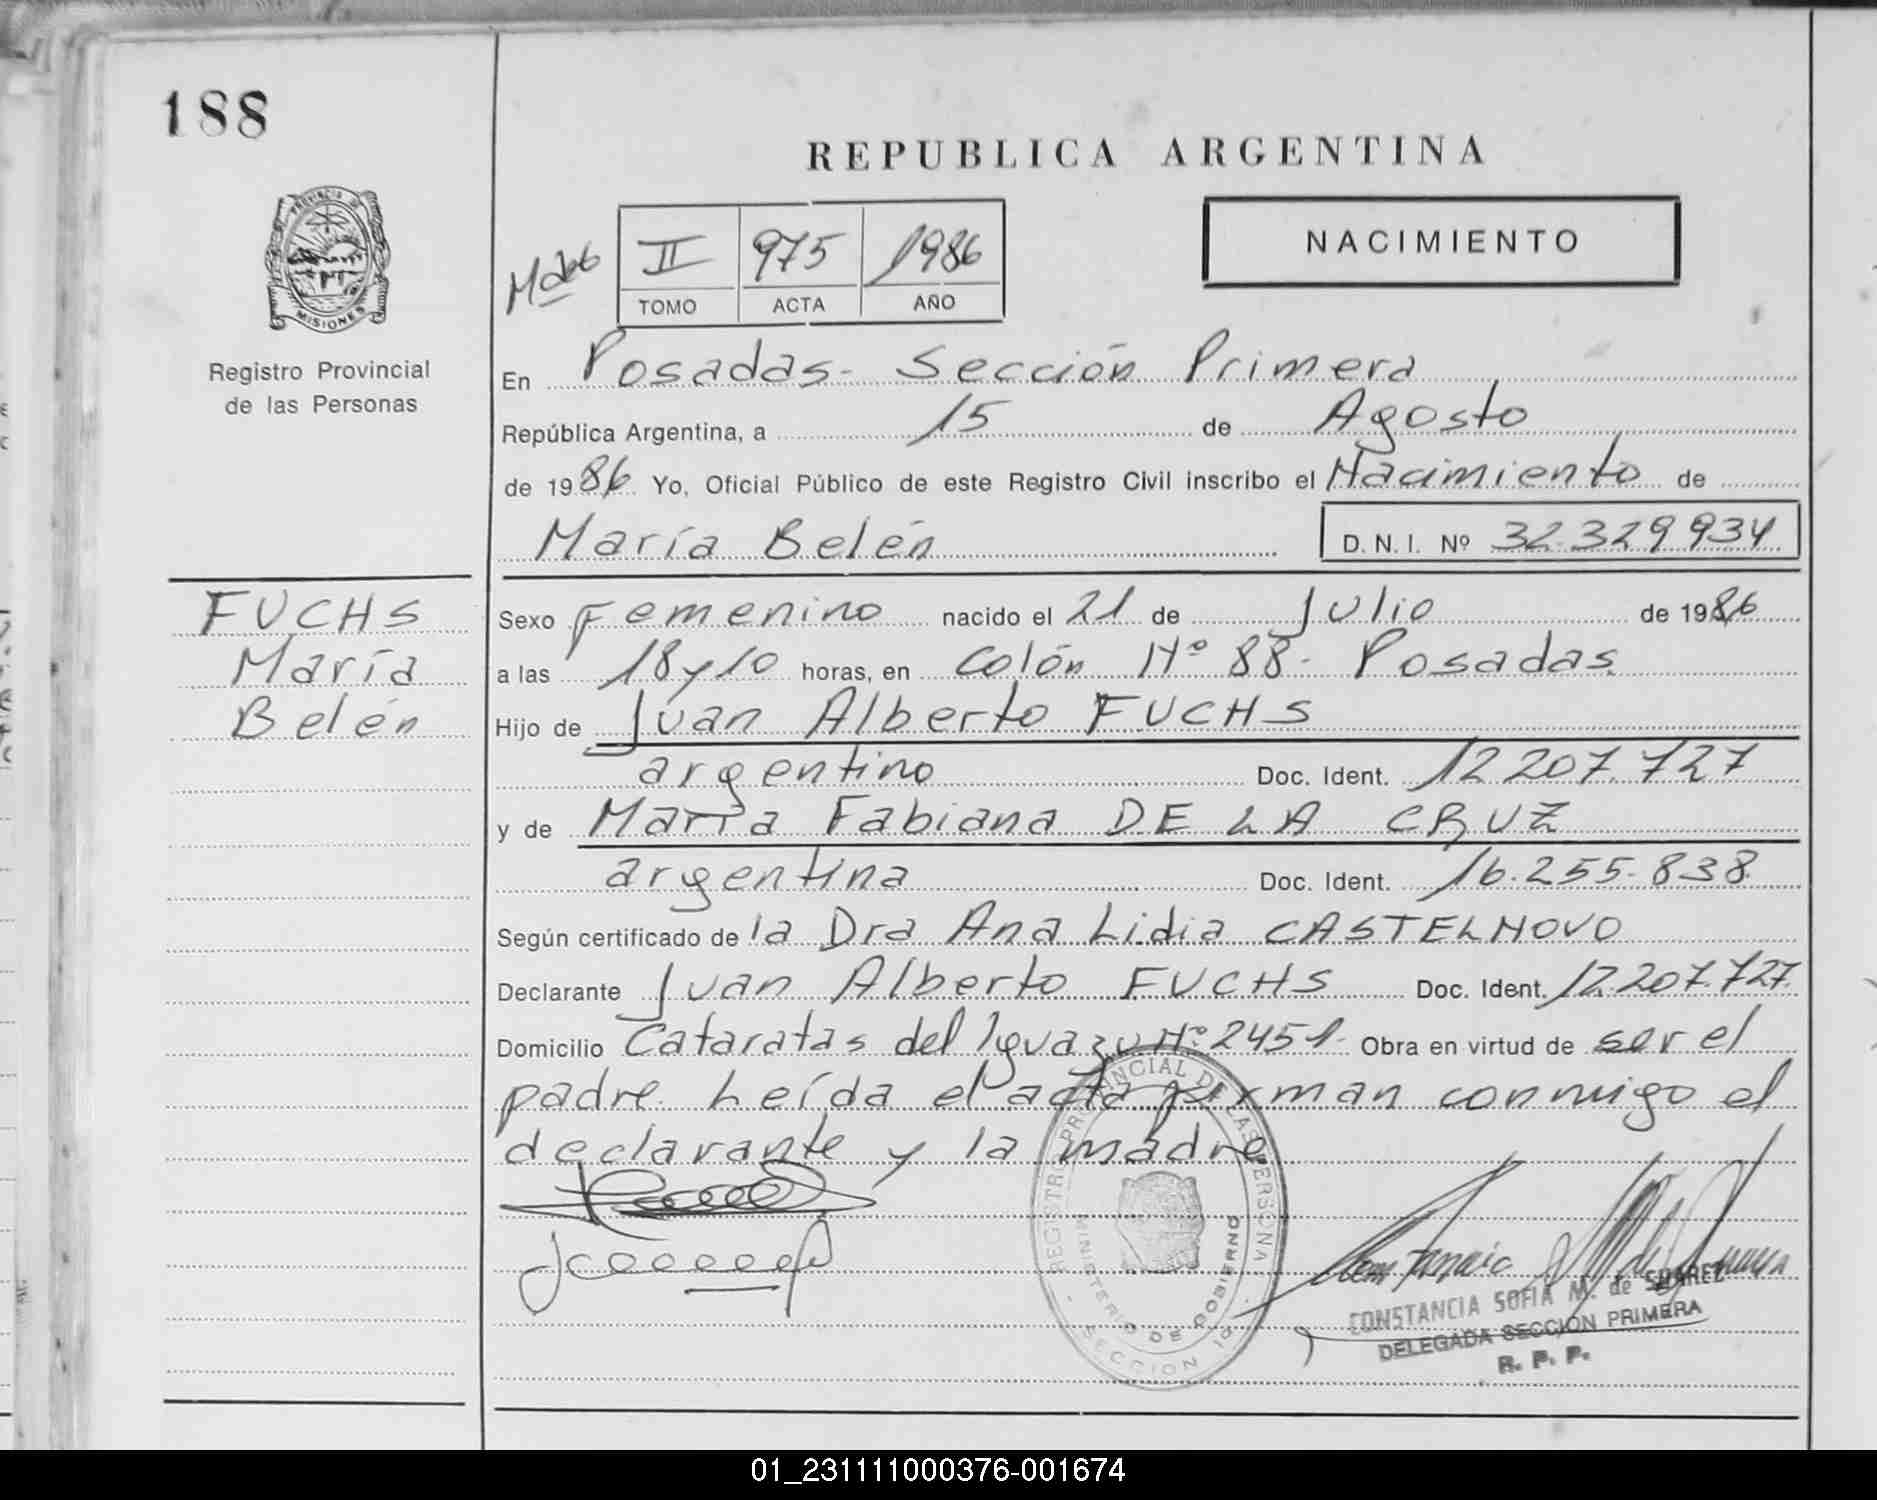 188
REPUBLICA ARGENTINA
PROVINCIA DE
MISIONES
Registro Provincial
de las Personas
II 975 1986
TOMO ACTA AÑO
NACIMIENTO
En Posadas- Sección Primera
República Argentina, a 15 de Agosto
de 1986 Yo, Oficial Público de este Registro Civil inscribo el Nacimiento de
María Belén D.N.I. Nº 32.329.934
FUCHS
María
Belén
Sexo Femenino nacido el 21 de Julio de 1986
a las 18 y 10 horas, en Colón Nº 88- Posadas
Hijo de Juan Alberto FUCHS
argentino Doc. Ident. 12.207.727
y de María Fabiana DE LA CRUZ
argentina Doc. Ident. 16.255.838
Según certificado de la Dra Ana Lidia CASTELNOVO
Declarante Juan Alberto FUCHS Doc. Ident. 12.207.727
Domicilio Cataratas del Iguazu Nº 2451- Obra en virtud de ser el
padre. Leída el acta firman conmigo el
declarante y la madre
REGISTRO PROVINCIAL DE LAS PERSONAS
MINISTERIO DE GOBIERNO
SECCION 1a
CONSTANCIA SOFIA M. de SUAREZ
DELEGADA SECCION PRIMERA
R. P. P.
01_231111000376-001674